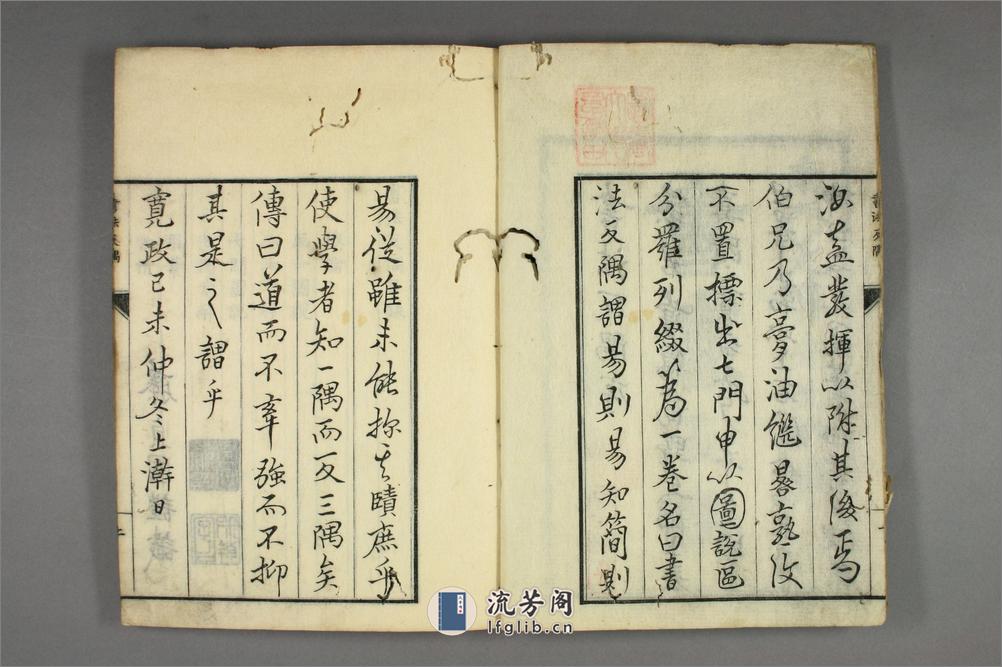 汝盍發揮以附其後焉
伯兄乃夢油繼晷孰
不置標出七門申以圖說區
分羅列綴為一卷名曰書
法反隅謂易則易知簡則
易從雖未能探其賾庶乎
使學者知一隅而反三隅矣
傳曰道而不牽強而不抑
其是之謂乎
寬政己未仲冬上澣日
書法反隅
流芳阁
lfglib.cn